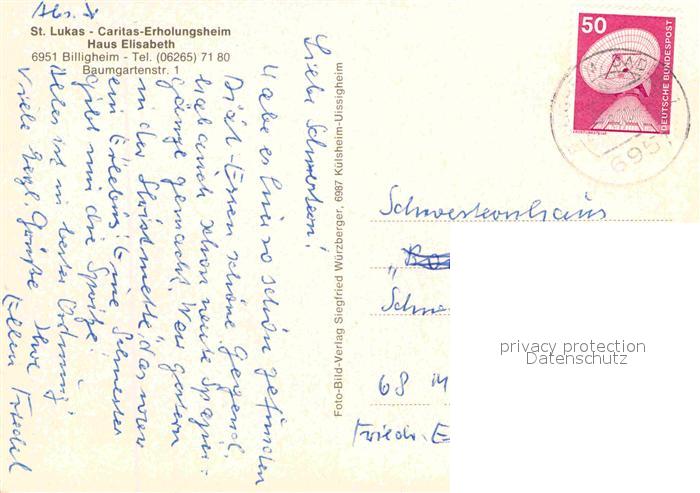 Abs.
St. Lukas - Caritas-Erholungsheim
Haus Elisabeth
6951 Billigheim - Tel. (06265) 71 80
Baumgartenstr. 1
Liebe Schwestern!
Habe es hier so schön gefunden
Diät-Essen schöne Gegend.
Habe auch schon weite Spazier-
gänge gemacht. War gestern
in der Christmette, das war
ein Erlebnis. Eine Schwester
gibt mir die Spritze.
Alles ist in bester Ordnung
Viele herzl. Grüße Ihre
Ellen Friedel
Foto-Bild-Verlag Siegfried Würzberger, 6987 Külsheim-Uissigheim
50
DEUTSCHE BUNDESPOST
BAD
695
Schwesternhaus
Schwe
68 M
Friedr. E
privacy protection
Datenschutz